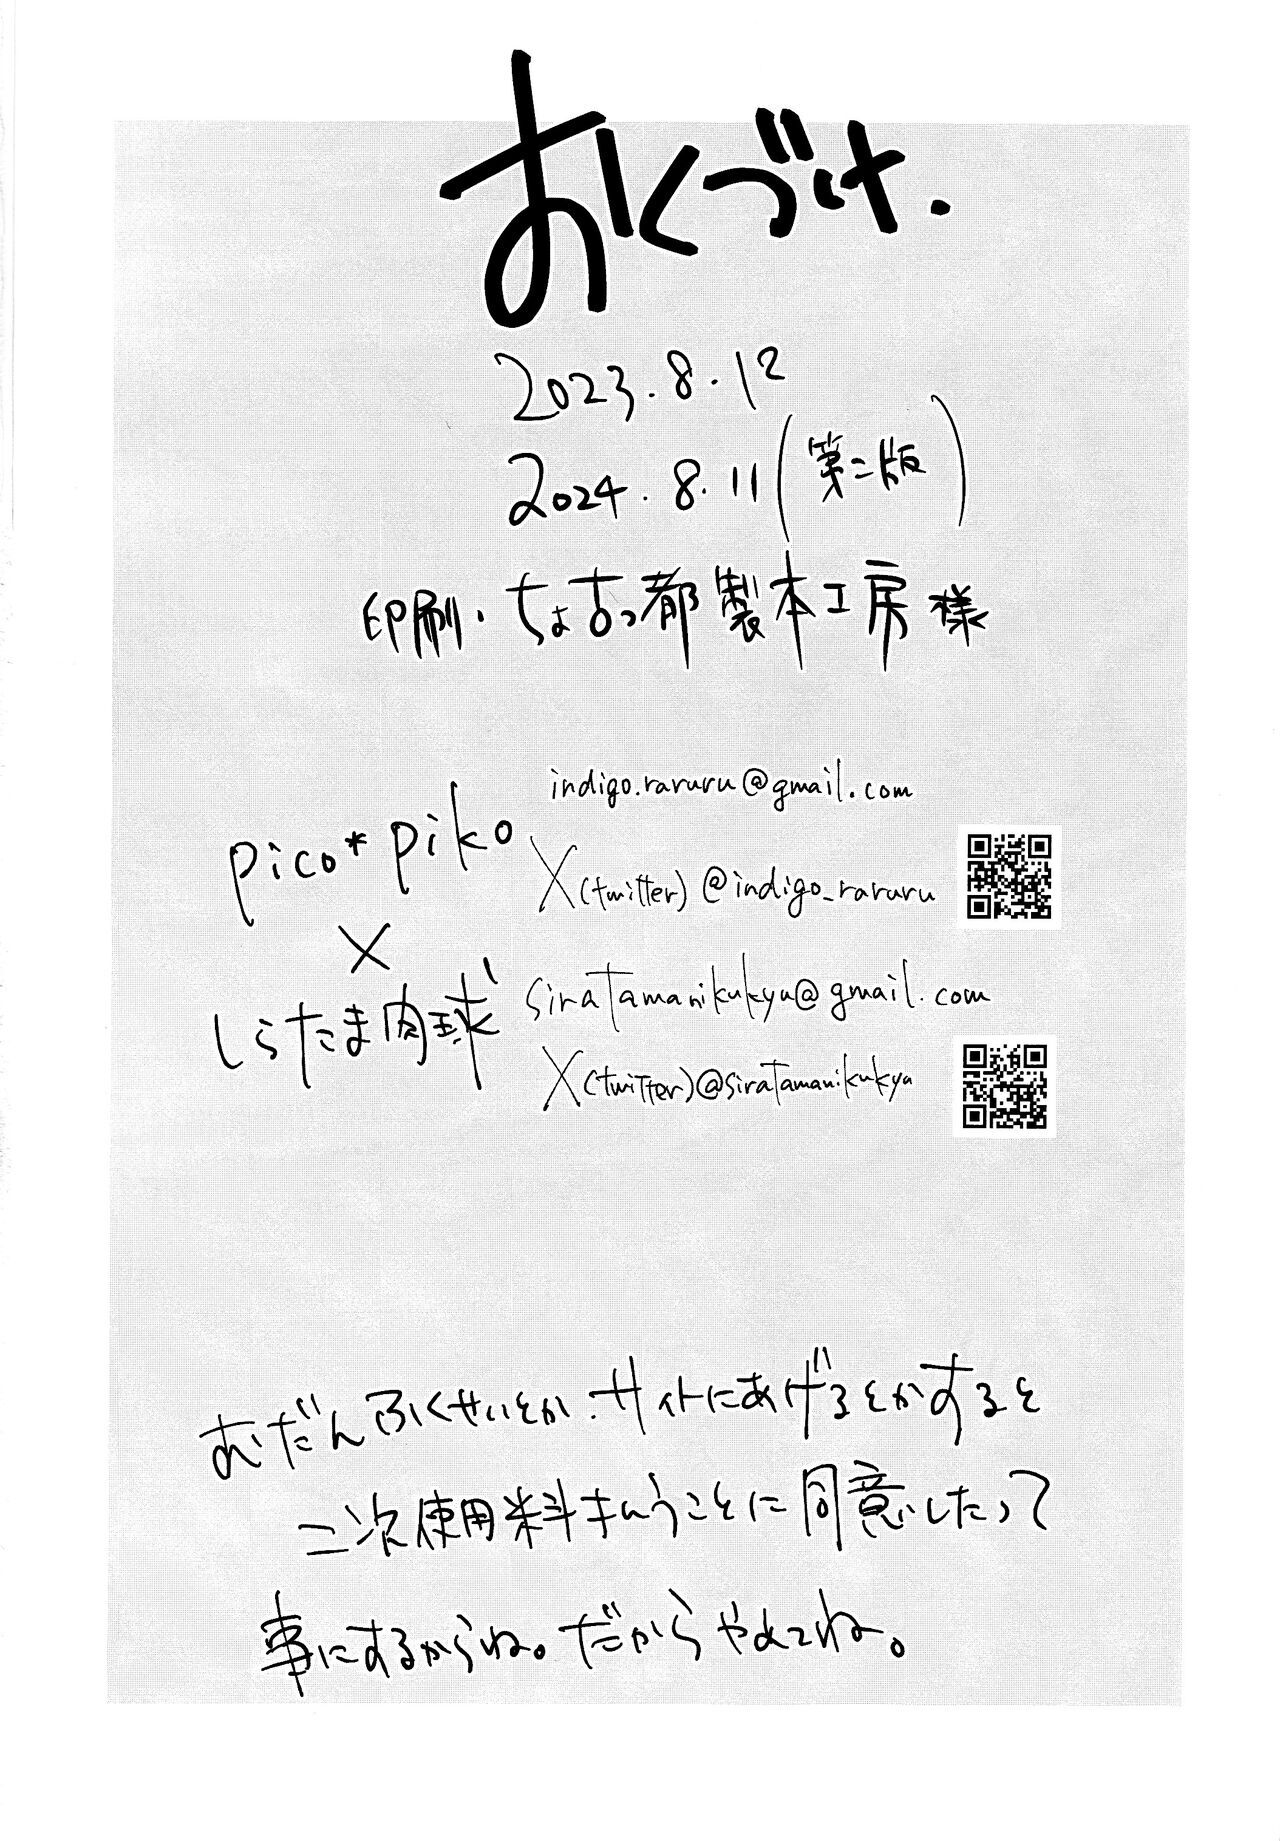 おくづけ.
2023.8.12
2024.8.11(第二版)
印刷.ちょ古っ都製本工房様
pico*piko
indigo.raruru@gmail.com
X(twitter)@indigo_raruru
×
しらたま肉球
siratamanikukyu@gmail.com
X(twitter)@siratamanikukyu
むだんふくせいとか.サイトにあげるとかすると
二次使用料はらうことに同意したって
事にするからね。だからやめてね。